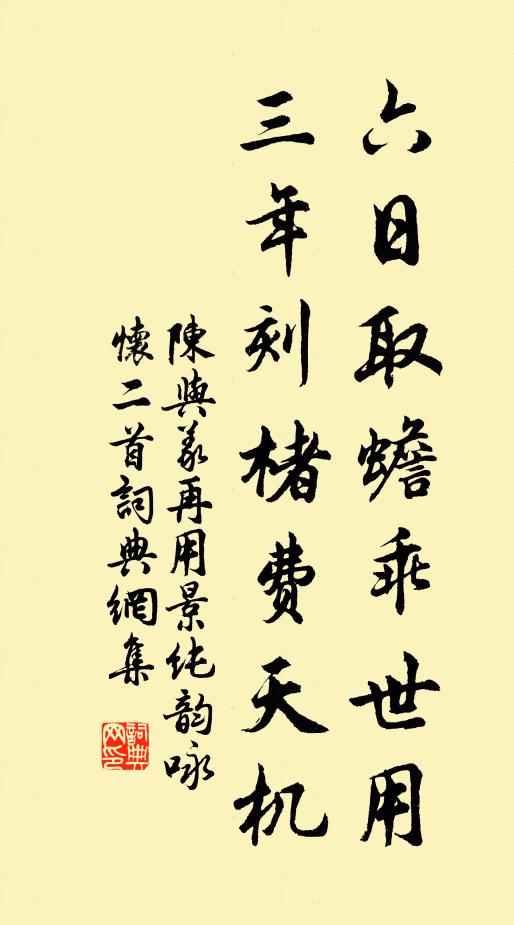 六日取蟾乖世用
三年刻楮费天机
陳與義再用景纯韵咏
懷二首詞典網集
詞典
网印